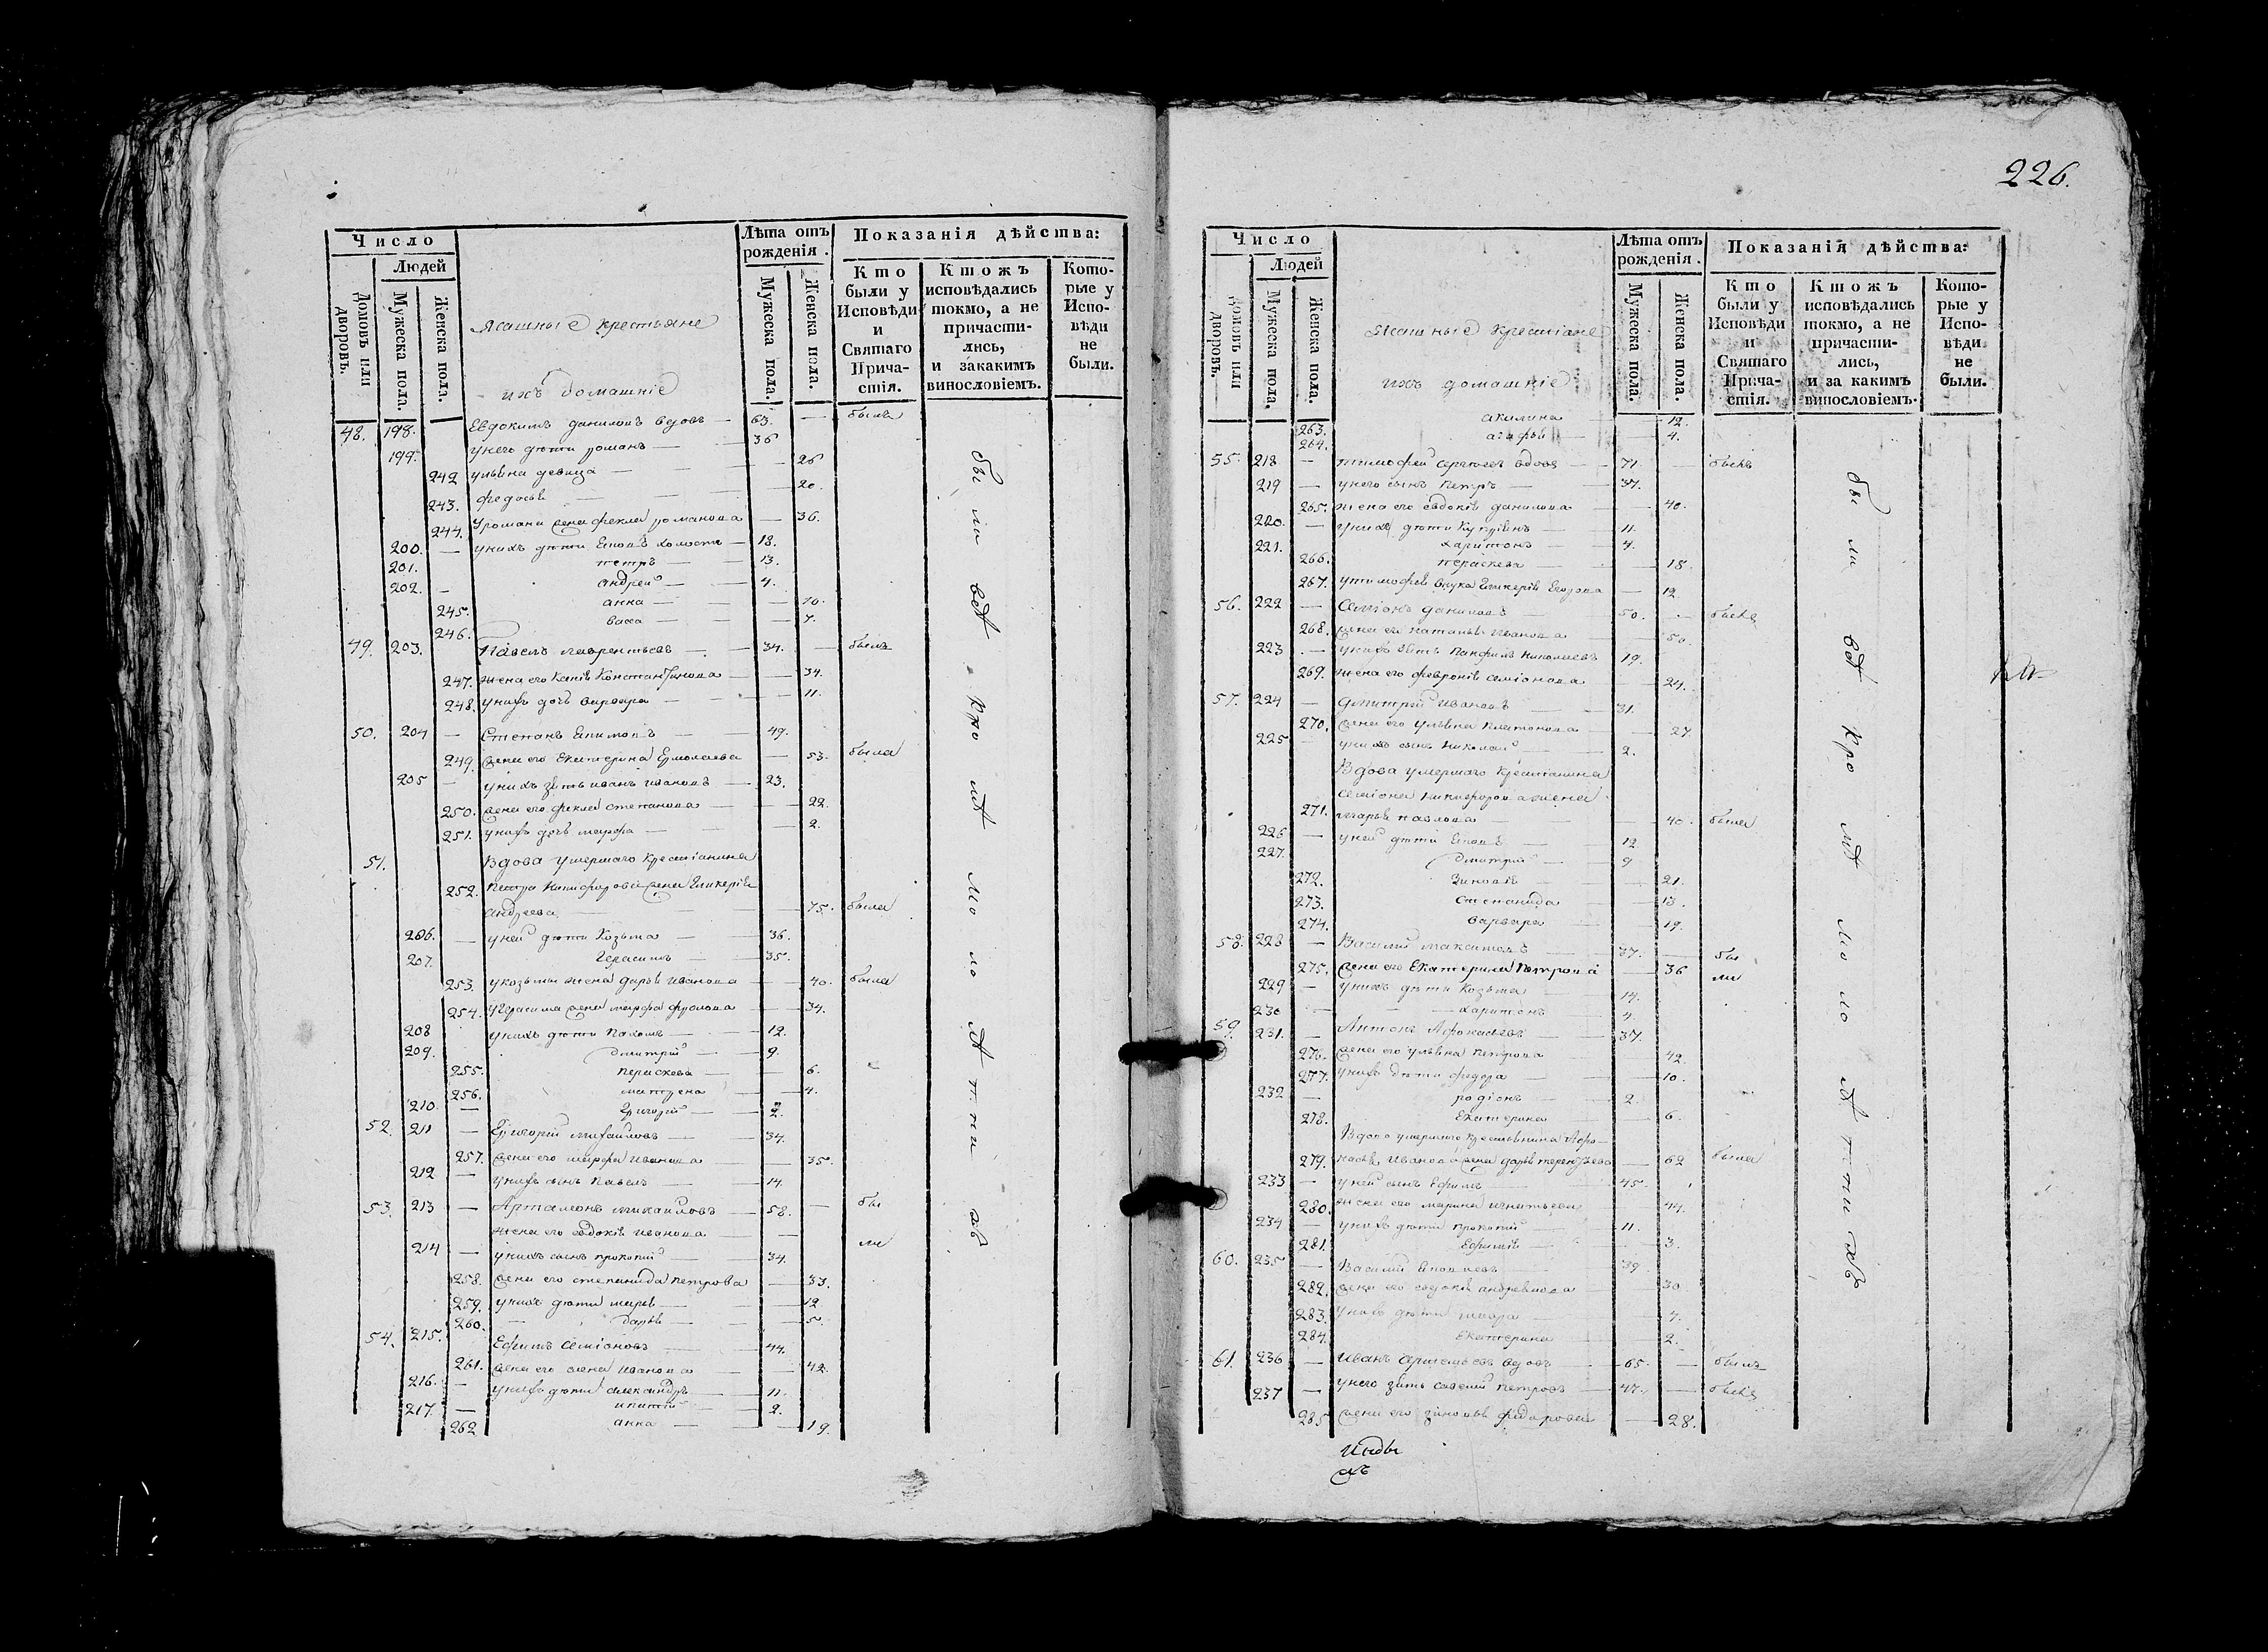 226.
Число
Людей
Домовъ или дворовъ.
Мужеска пола.
Женска пола.
Ясашные крестьяне
ихъ домашніе
Лѣта отъ рожденія.
Мужеска пола.
Женска пола.
Показанія дѣйства:
Кто были у Исповѣди и Святаго Прича-стія.
Ктожъ исповѣдались токмо, а не причасти-лись, и закакимъ винословіемъ.
Кото-рые у Испо-вѣди не были.
48. 198. Евдокимъ даниловъ вдовъ — 63. — былъ
199. унего дѣти романъ — 36
242 ульяна девица — 26
243. федосья — 20.
244. Уромана жена фекла романова — 36.
200. — унихъ дѣти Екимъ холостъ — 18.
201. петръ — 13.
202. — андрей — 4.
245. анна — 10.
246. васса — 7.
49. 203. Павелъ лаврентьевъ — 34. — былъ
247. жена его Ксенія Константинова — 34.
248. унихъ дочь варвара — 11.
50. 204 — Степанъ Екимовъ — 49.
249. жена его Екатерина Ермолаева — 53. была
205 — унихъ зять иванъ ивановъ — 23.
250. жена его фекла степанова — 22.
251. унихъ дочь марфа — 2.
51. Вдова умершаго крестіянина
252. петра никифорова жена Гликерія
андреева — 75. была
206. — уней дѣти Козьма — 36.
207. Герасимъ — 35.
253. укозьмы жена дарья иванова — 40. была
254. уГерасима жена марфа фролова — 34.
208 унихъ дѣти Пахомъ — 12.
209. Дмитрий — 9.
255. параскева — 6.
256. матрена — 4.
210. — Григорий — 2.
52. 211 — Григорий михайловъ — 34.
257. жена его марфа иванова — 35.
212 — унихъ сынъ павелъ — 14.
53. 213 — Артамонъ михаиловъ — 58. — бы
жена его евдокія иванова — ли
214 — унихъ сынъ прокопий — 34.
258. жена его степанида петрова — 33.
259. унихъ дѣти марья — 12
260. — дарья — 5.
54. 215. Ефимъ семіоновъ — 44.
261. жена его анна иванова — 42.
216. — унихъ дѣти александръ — 11.
217. — ипатий — 2.
262 анна — 19.
бы ли вѣ кро мѣ мо ло лѣ тни хъ
Число
Людей
Домовъ или дворовъ.
Мужеска пола.
Женска пола.
Ясашные крестіане
ихъ домашніе
Лѣта отъ рожденія.
Мужеска пола.
Женска пола.
Показанія дѣйства:
Кто были у Исповѣди и Святаго Прича-стія.
Ктожъ исповѣдались токмо, а не причасти-лись, и за какимъ винословіемъ.
Кото-рые у Испо-вѣди не были.
263. акилина — 12.
264. агафья — 4.
55. 218 — тимофей сергеевъ вдовъ — 71. —
219 — унего сынъ петръ — 37.
265. жена его евдокія данилова — 40.
220. — унихъ дѣти Купріянъ — 11.
221. харитонъ — 4.
266. параскева — 18.
267. утимофея внука Гликерія Егорова — 12
56. 222 — Семіонъ даниловъ — 50. —
268. жена его наталья иванова — 50.
223 — унихъ зять панфилъ николаевъ 19.
269. жена его февронія семіонова — 24.
57. 224 — Дмитрей ивановъ — 31.
270. жена его ульяна платонова — 27
225 — унихъ сынъ николай — 2.
Вдова умершаго крестіанина
семіона никифорова жена
271. марья павлова — 40. была
226 — уней дѣти Екимъ — 12
227. Дмитрий — 9
272. Зиновія — 21.
273. степанида — 13.
274. варвара — 19.
58. 228 — Василий максимовъ — 37. — бы
275. жена его Екатерина петрова — 36 ли
229 — унихъ дѣти Козьма — 14.
230 — харитонъ — 4.
59. 231. — Антонъ Афонасьевъ — 37.
276. жена его ульяна петрова 42
277. унихъ дѣти федора — 10.
232 — родіонъ — 2
278. Екатерина — 6.
Вдова умершаго крестьянина Афо-
279. насья иванова жена дарья терентьева — 62 была
233 — уней сынъ Ефимъ — 45.
280. жена его марина игнатьева — 44.
234 — унихъ дѣти прокопий — 11.
281. Ефимія — 3.
60. 235 — Василий — 39
282. жена его евдокія — 30
283. унихъ дѣти — 7.
284. Екатерина — 2.
61. 236 — иванъ вдовъ — 65. — былъ
237 — унего зять савелий петровъ — 47. —
285 жена его зиновья федорова — 28.
бы ли вѣ кро мѣ мо ло лѣ тни хъ